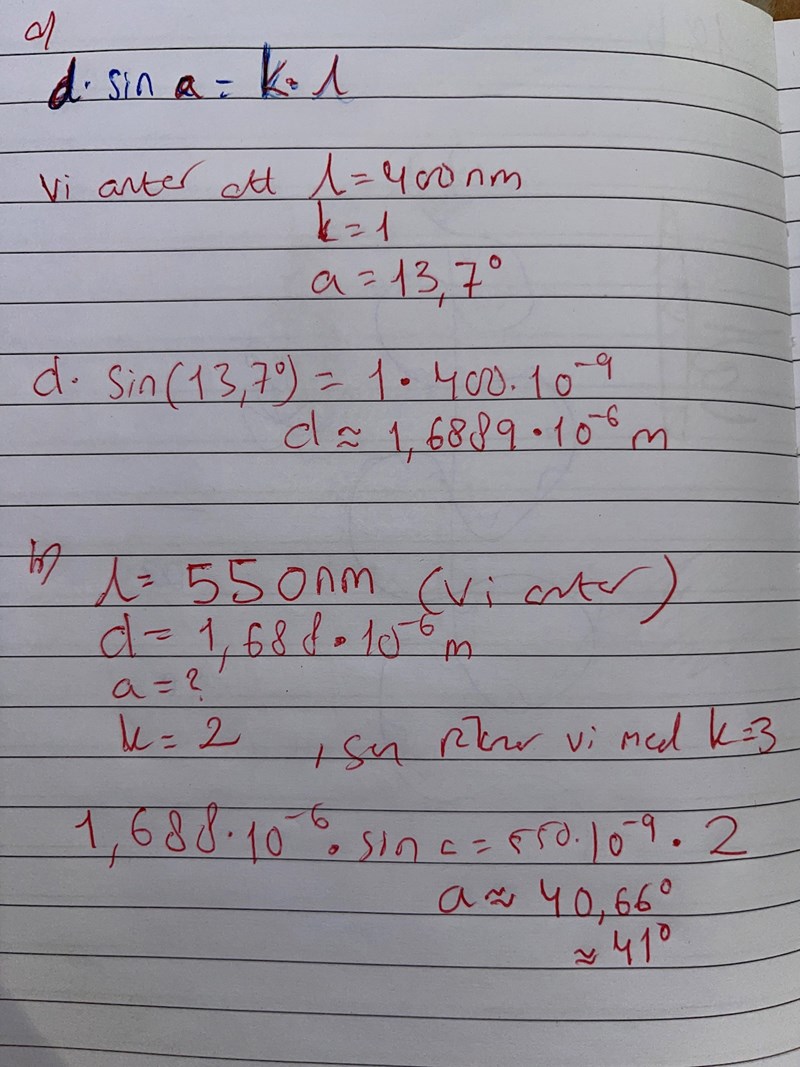 a)
d · sin a = k · λ
Vi antar att λ = 400 nm
k = 1
a = 13,7°
d · sin(13,7°) = 1 · 400 · 10⁻⁹
d ≈ 1,6889 · 10⁻⁶ m
b) λ = 550 nm (Vi antar)
d = 1,688 · 10⁻⁶ m
a = ?
k = 2 , sen räknar vi med k=3
1,688 · 10⁻⁶ · sin a = 550 · 10⁻⁹ · 2
a ≈ 40,66°
≈ 41°